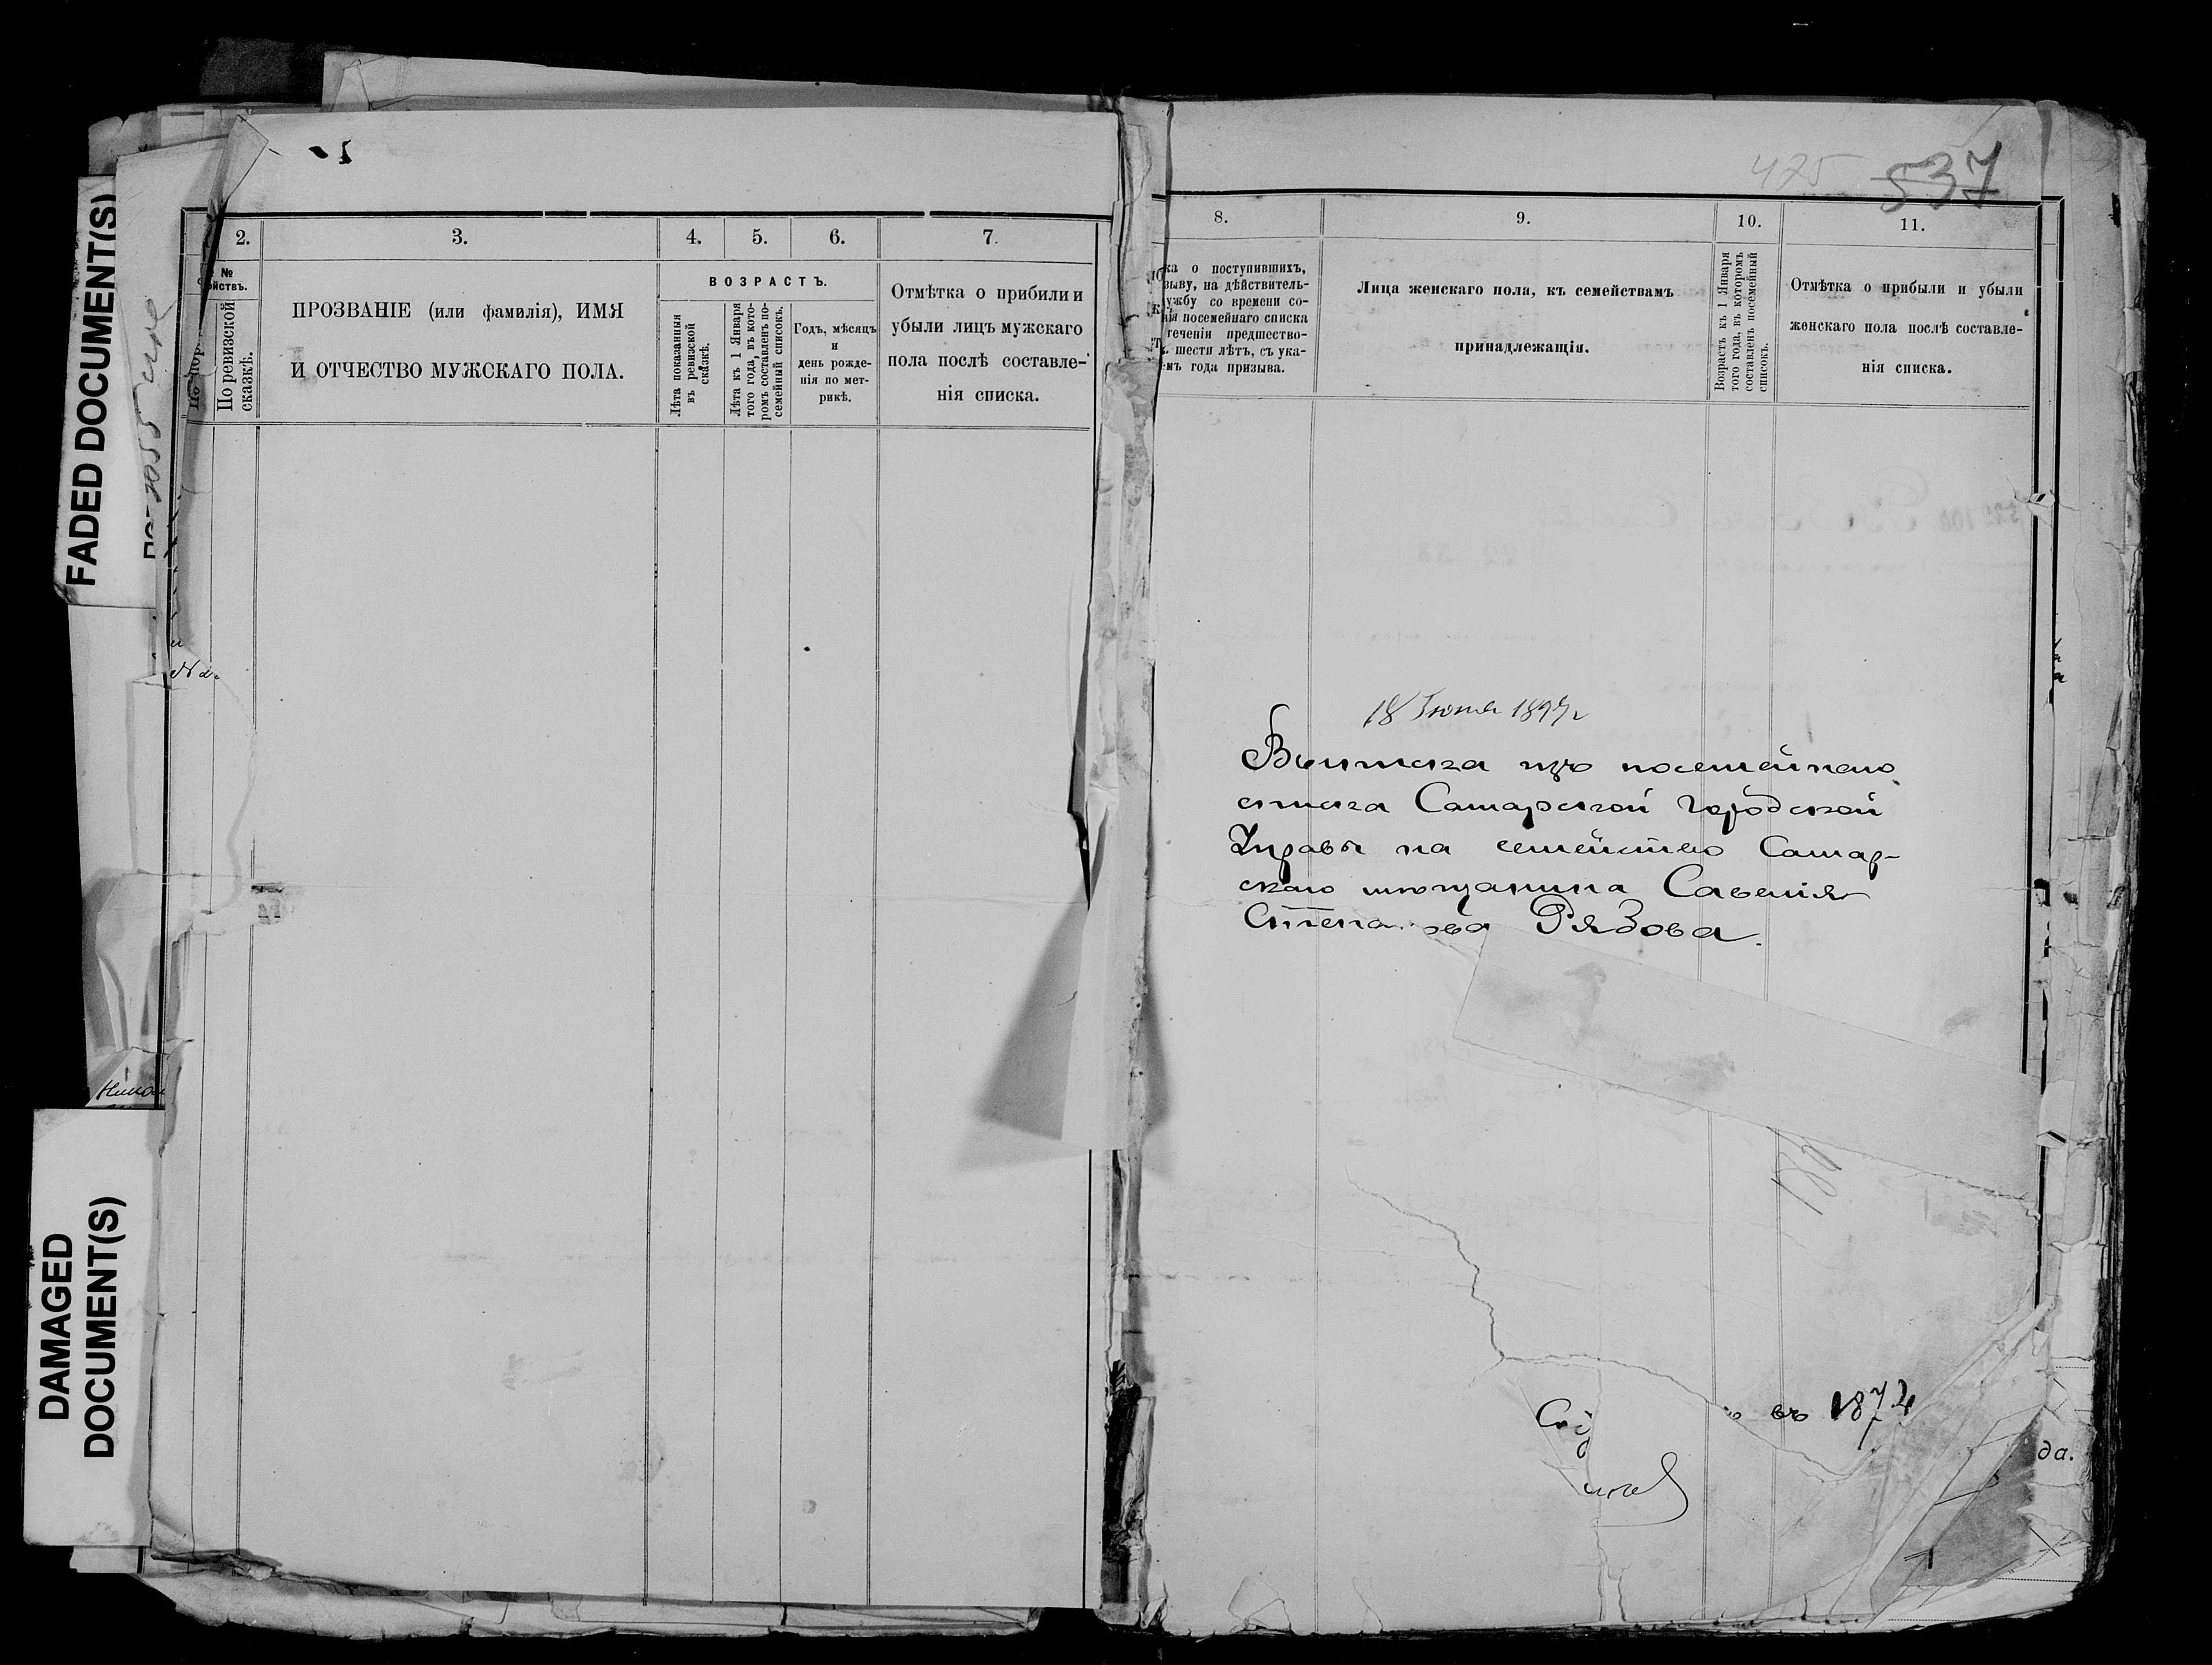 FADED DOCUMENT(S)
DAMAGED
DOCUMENT(S)
2.
3.
4.
5.
6.
7.
№
По ревизской
сказкѣ.
ПРОЗВАНІЕ (или фамилія), ИМЯ
И ОТЧЕСТВО МУЖСКАГО ПОЛА.
ВОЗРАСТЪ.
Лѣта показанныя
въ ревизской
сказкѣ.
Лѣта къ 1 Января
того года, въ кото-
ромъ составленъ по-
семейный списокъ.
Годъ, мѣсяцъ
и
день рожде-
нія по мет-
рикѣ.
Отмѣтка о прибыли и
убыли лицъ мужскаго
пола послѣ составле-
нія списка.
475 537
8.
9.
10.
11.
ка о поступившихъ,
зыву, на дѣйствитель-
ужбу со времени со-
нія посемейнаго списка
теченіи предшество-
шести лѣтъ, съ ука-
емъ года призыва.
Лица женскаго пола, къ семействамъ
принадлежащія.
Возрастъ къ 1 Января
того года, въ которомъ
составленъ посемейный
списокъ.
Отмѣтка о прибыли и убыли
женскаго пола послѣ составле-
нія списка.
18 Іюня 1897г
Выписка изъ посемейнаго
списка Самарской городской
Управы на семейство Самар-
скаго мѣщанина Савелія
Степанова Рязова.
въ 1874
да.